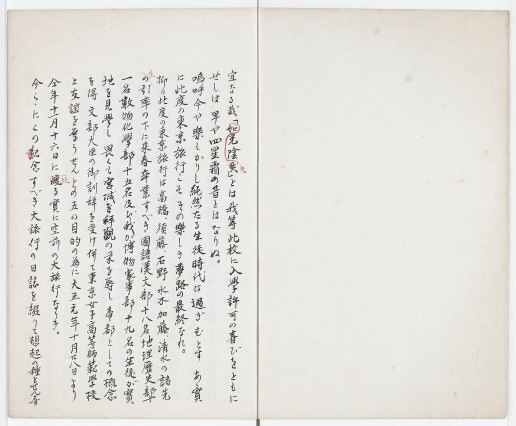 宜なる哉「如光陰矢」とは我等此校に入學許可の喜びをともに
せしは早や四星霜の昔とはなりぬ。
嗚呼今や樂しかりし純然たる生徒時代は過ぎむとす あゝ實
に此度の東京旅行こそその樂しき夢路の最終なれ。
抑々此度の東京旅行は高橋、須藤、石野、水木、加藤、清水の諸先
の引率の下に來春卒業すべき國語漢文部十八名地理歴史部
一名數物化學部十五名及び我が博物家事部十九名の生徒が實
地を見學し畏くも宮城を拜觀の榮を辱し帝都としての概念
を得 文部大臣の御訓辭を受け併て東京女子高等師範學校
と友誼を厚うせんとの五の目的の為に大正元年十月廿八日より
全年十一月十六日に渡る實に空前の大旅行なりき。
今こゝにこの記念すべき大旅行の日誌を綴りて想起の種と